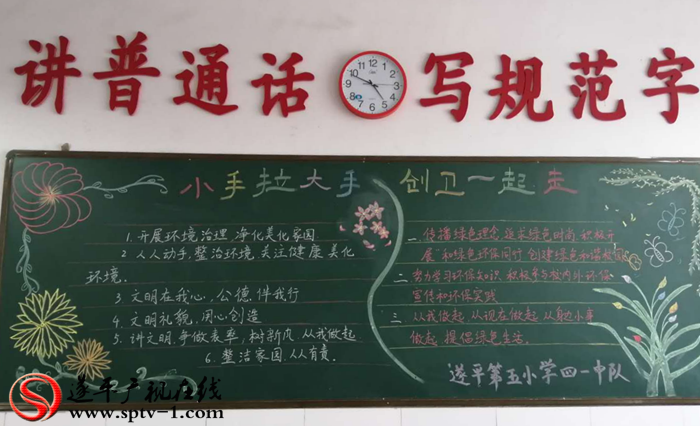 讲普通话 写规范字
小手拉大手 创卫一起走
1. 开展环境治理 净化美化家园
2 人人动手,整治环境 关注健康 美化
环境.
3 文明在我心,公德伴我行
4. 文明礼貌,用心创造
5. 讲文明,争做表率,树新风,从我做起
6. 整洁家园,人人有责.
一 传播绿色理念 追求绿色时尚 积极开
展和绿色环保同行 创建绿色和谐校园
二 努力学习环保知识 积极参与校内外环保
宣传和环保实践
三 从我做起 从现在做起 从身边小事
做起 提倡绿色生活.
遂平第五小学四一中队
遂平广视在线
www.sptv-1.com